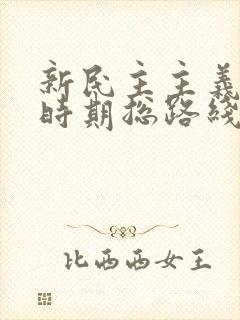 新民主主義
時期总路綫
比西西女王